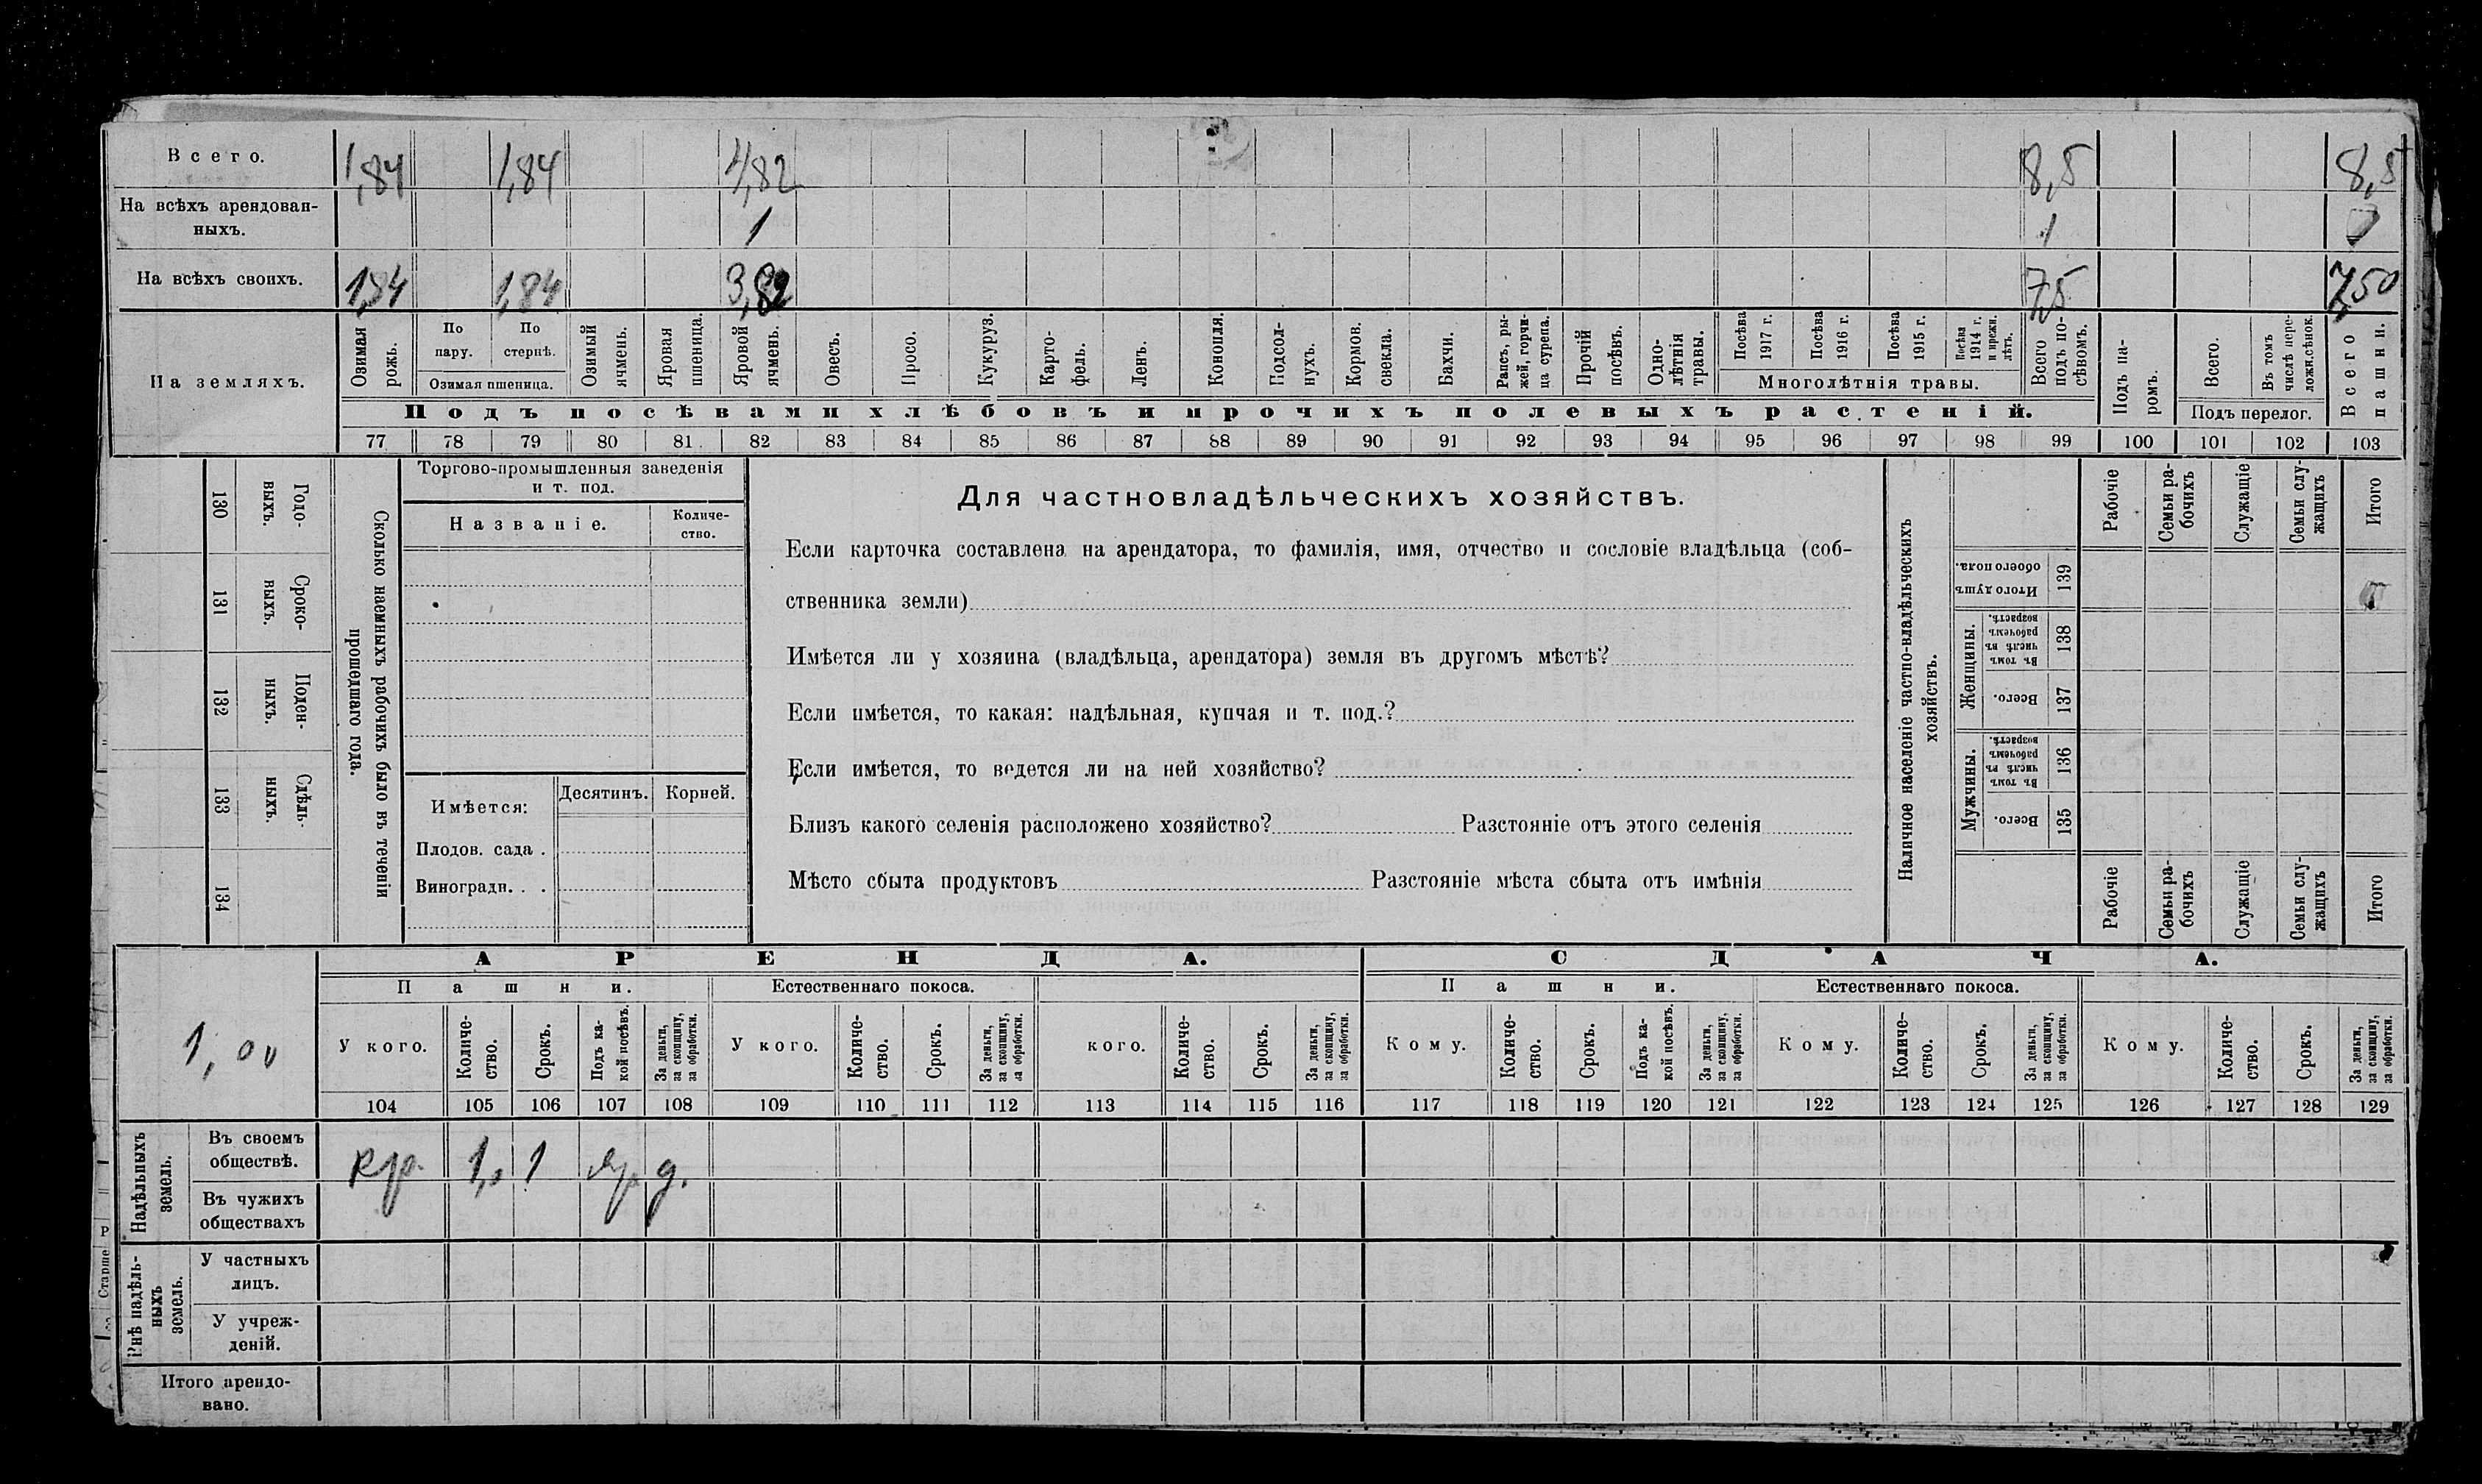 Всего. 1,84 1,84 4,82 8,5 8,5
На всѣхъ арендован-
ныхъ. 1 1
На всѣхъ своихъ. 1,84 1,84 3,82 7,5 7,50
На земляхъ.
Озимая рожь.
По пару.
По стернѣ.
Озимая пшеница.
Озимый ячмень.
Яровая пшеница.
Яровой ячмень.
Овесъ.
Просо.
Кукуруз.
Карто-
фель.
Ленъ.
Конопля.
Подсол-
нухъ.
Кормов. свекла.
Бахчи.
Рапсъ, ры-
жей, горчи-
ца сурепа.
Прочій посѣвъ.
Одно-
лѣтнія травы.
Посѣва 1917 г.
Посѣва 1916 г.
Посѣва 1915 г.
Посѣва 1914 г. и прежн. лѣтъ.
Многолѣтнія травы.
Всего подъ по-
сѣвомъ.
Подъ па-
ромъ.
Всего.
Въ томъ числѣ пере-
ложн.сѣнок.
Подъ перелог.
Всего пашни.
Подъ посѣвами хлѣбовъ и прочихъ полевыхъ растеній.
77 78 79 80 81 82 83 84 85 86 87 88 89 90 91 92 93 94 95 96 97 98 99 100 101 102 103
130 Годо-
выхъ.
131 Сроко-
ныхъ.
132 Поден-
ныхъ.
133 Сдѣль-
ныхъ.
134
Сколько наемныхъ рабочихъ было въ теченіи
прошедшаго года.
Торгово-промышленныя заведенія
и т. под.
Названіе.
Количе-
ство.
Имѣется: Десятинъ. Корней.
Плодов. сада .
Виноградн. . .
Для частновладѣльческихъ хозяйствъ.
Если карточка составлена на арендатора, то фамилія, имя, отчество и сословіе владѣльца (соб-
ственника земли)
Имѣется ли у хозяина (владѣльца, арендатора) земля въ другомъ мѣстѣ?
Если имѣется, то какая: надѣльная, купчая и т. под.?
Если имѣется, то ведется ли на ней хозяйство?
Близъ какого селенія расположено хозяйство? Разстояніе отъ этого селенія
Мѣсто сбыта продуктовъ Разстояніе мѣста сбыта отъ имѣнія
Наличное населеніе частно-владѣльческихъ
хозяйствъ.
Рабочіе
Семьи ра-
бочихъ
Служащіе
Семьи слу-
жащихъ
Итого
Итого душъ обоего пола. 139
Женщины.
Въ томъ числѣ въ рабочемъ возрастѣ. 138
Всего. 137
Мужчины.
Въ томъ числѣ въ рабочемъ возрастѣ. 136
Всего. 135
Рабочіе
Семьи ра-
бочихъ
Служащіе
Семьи слу-
жащихъ
Итого
1,00
АРЕНДА. СДАЧА.
Пашни. Естественнаго покоса. Пашни. Естественнаго покоса.
У кого.
Количе-
ство.
Срокъ.
Подъ ка-
кой посѣвъ.
За деньги,
за скопщину,
за обработки.
У кого.
Количе-
ство.
Срокъ.
За деньги,
за скопщину,
за обработки.
кого.
Количе-
ство.
Срокъ.
За деньги,
за скопщину,
за обработки.
Кому.
Количе-
ство.
Срокъ.
Подъ ка-
кой посѣвъ.
За деньги,
за скопщину,
за обработки.
Кому.
Количе-
ство.
Срокъ.
За деньги,
за скопщину,
за обработки.
Кому.
Количе-
ство.
Срокъ.
За деньги,
за скопщину,
за обработки.
104 105 106 107 108 109 110 111 112 113 114 115 116 117 118 119 120 121 122 123 124 125 126 127 128 129
Надѣльныхъ земель.
Въ своемъ
обществѣ. кр. 1,0 1 яр. д.
Въ чужихъ
обществахъ
Внѣ надѣль-
ныхъ
земель.
У частныхъ
лицъ.
У учреж-
деній.
Итого арендо-
вано.
Р
Старше